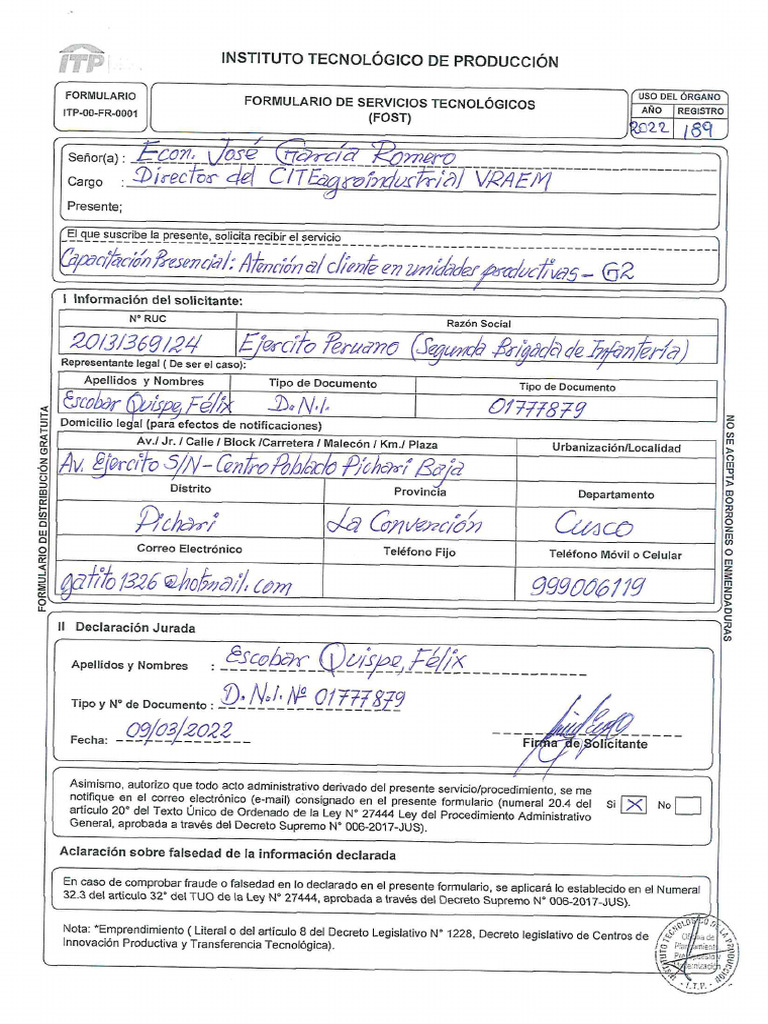 ITP
INSTITUTO TECNOLÓGICO DE PRODUCCIÓN
FORMULARIO
ITP-00-FR-0001
FORMULARIO DE SERVICIOS TECNOLÓGICOS
(FOST)
USO DEL ÓRGANO
AÑO REGISTRO
2022 189
Señor(a) : Econ. José García Romero
Cargo : Director del CITEagroindustrial VRAEM
Presente;
El que suscribe la presente, solicita recibir el servicio
Capacitación Presencial: Atención al cliente en unidades productivas - G2
I Información del solicitante:
N° RUC Razón Social
20131369124 Ejercito Peruano (Segunda Brigada de Infantería)
Representante legal ( De ser el caso):
Apellidos y Nombres Tipo de Documento Tipo de Documento
Escobar Quispe, Félix D.N.I. 01777879
Domicilio legal (para efectos de notificaciones)
Av./ Jr. / Calle / Block /Carretera / Malecón / Km./ Plaza Urbanización/Localidad
Av. Ejercito S/N - Centro Poblado Pichari Baja
Distrito Provincia Departamento
Pichari La Convención Cusco
Correo Electrónico Teléfono Fijo Teléfono Móvil o Celular
gatito1326@hotmail.com 999006119
FORMULARIO DE DISTRIBUCIÓN GRATUITA
NO SE ACEPTA BORRONES O ENMENDADURAS
II Declaración Jurada
Apellidos y Nombres : Escobar Quispe, Félix
Tipo y N° de Documento : D.N.I. Nº 01777879
Fecha: 09/03/2022
Firma de Solicitante
Asimismo, autorizo que todo acto administrativo derivado del presente servicio/procedimiento, se me
notifique en el correo electrónico (e-mail) consignado en el presente formulario (numeral 20.4 del
artículo 20° del Texto Único de Ordenado de la Ley N° 27444 Ley del Procedimiento Administrativo
General, aprobada a través del Decreto Supremo N° 006-2017-JUS).
Si X No
Aclaración sobre falsedad de la información declarada
En caso de comprobar fraude o falsedad en lo declarado en el presente formulario, se aplicará lo establecido en el Numeral
32.3 del artículo 32° del TUO de la Ley N° 27444, aprobada a través del Decreto Supremo N° 006-2017-JUS).
Nota: *Emprendimiento ( Literal o del artículo 8 del Decreto Legislativo N° 1228, Decreto legislativo de Centros de
Innovación Productiva y Transferencia Tecnológica).
INSTITUTO TECNOLÓGICO DE LA PRODUCCIÓN
Oficina de
Planeamiento
Presupuesto y
Modernización
- I.T.P. -